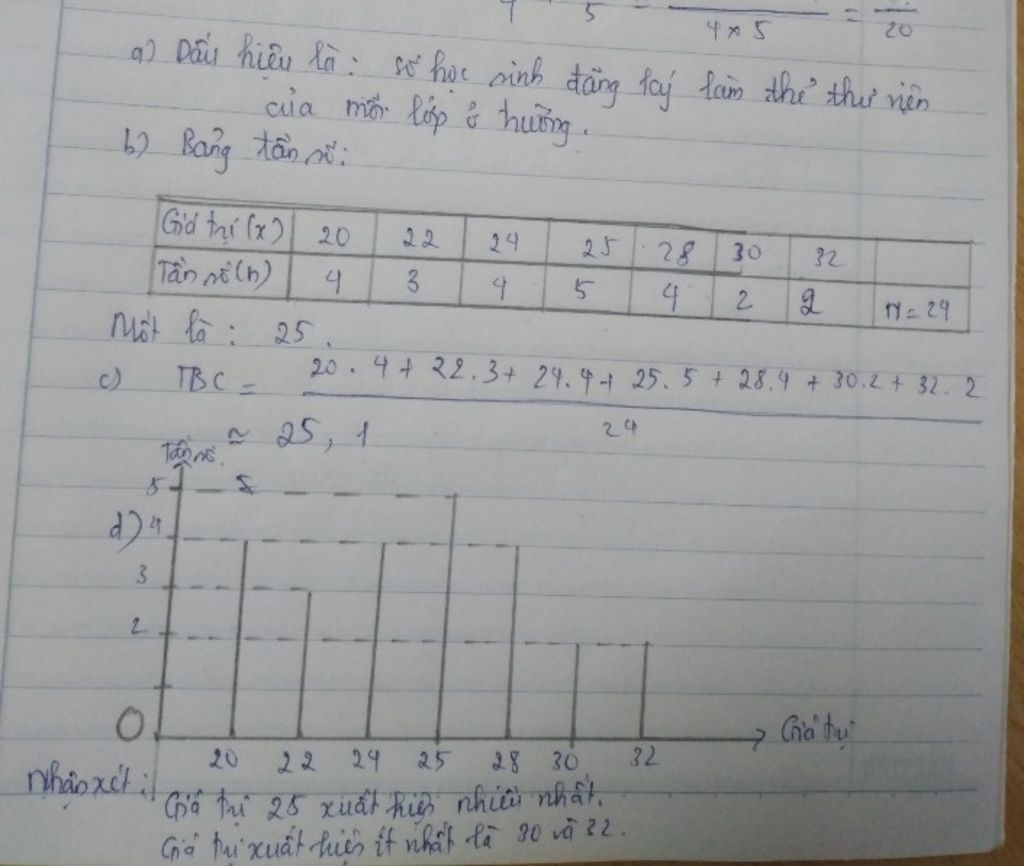 4 5 = 4 × 5 = 20
a) Dấu hiệu là: số học sinh đăng ký làm thẻ thư viện
của mỗi lớp ở trường.
b) Bảng tần số:
Giá trị (x) 20 22 24 25 28 30 32
Tần số (n) 4 3 4 5 4 2 2 N = 24
Mốt là: 25.
c) TBC = 20.4 + 22.3 + 24.4 + 25.5 + 28.4 + 30.2 + 32.2
24
≈ 25,1
Tần số
5
d) 4
3
2
O
Giá trị
20 22 24 25 28 30 32
Nhận xét:
Giá trị 25 xuất hiện nhiều nhất.
Giá trị xuất hiện ít nhất là 30 và 32.